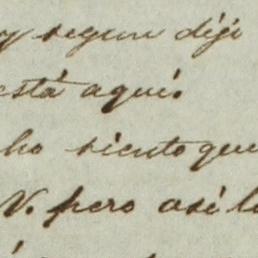 y segun dijo
está aquí.
ho siento que
V. pero así lo